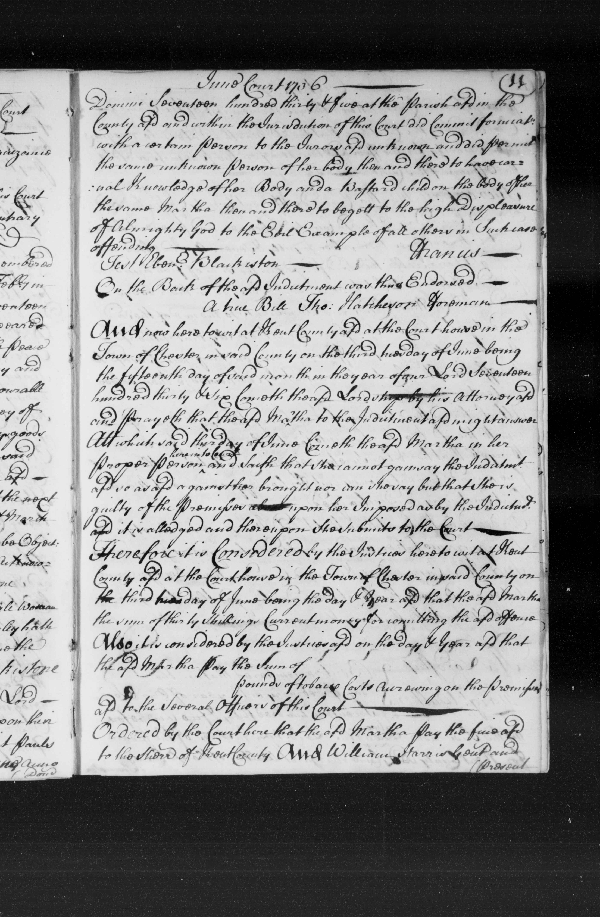 June Court 1736
11
Domini Seventeen hundred thirty & five at the Parish afd in the
County afd and within the Jurisdiction of this Court did Commit fornicat:
with a certain Person to the Jurors afd unknown and did permit
the same unknown Person of her body then and there to have car
:nal Knowledge of her Body and a Bastard child on the body of her
the same Martha then and there to begett to the high Displeasure
of Almighty God to the Evil Example of all others in Such case
offending
Francis
Test Eben: Blackiston
On the Back of the afd Indictment was thus Endorsed
A true Bill Tho: Hatcheson Foreman
And now here to wit at Kent County afd at the Court house in the
Town of Chester in said County on the third tuesday of June being
the fifteenth day of said month in the year of our Lord Seventeen
hundred thirty & Six Cometh the afd Lord by his Attorney afd
and Prayeth that the afd Martha to the Indictment afd might answer
Att which said third day of June Cometh the afd Martha in her
Proper Person and Saith that She cannot gainsay the Indictmt
here into Court
afd so as afd against her brought nor can she say but that She is
guilty of the Premises upon her Imposed as by the Indictmt
and it is alledged and thereupon She Submits to the Court
Therefore it is Considered by the Justices here to wit at Kent
County afd at the Court house in the Town of Chester in said County on
the third tuesday of June being the day & Year afd that the afd Martha
the sum of thirty Shillings Current money for comitting the afd offence
Also it is considered by the Justices afd on the day & Year afd that
the afd Martha Pay the Sum of
pounds of tobacco Costs Accrewing on the Premises
afd to the Several Officers of this Court
Ordered by the Court here that the afd Martha Pay the fine afd
to the Sheriff of Kent County And William Harris Gent and
Present